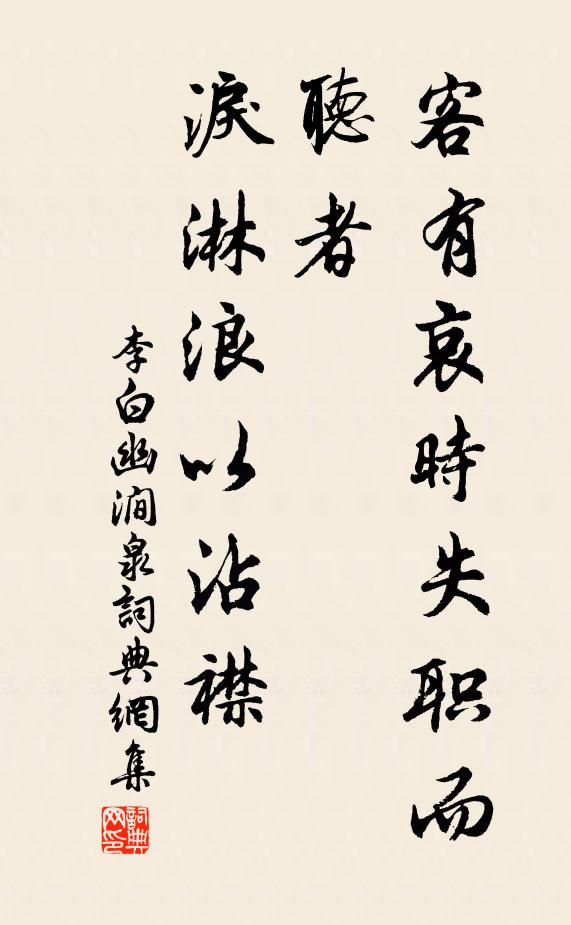 客有哀時失职而
聽者
淚淋浪以沾襟
李白幽澗泉詞典網集
詞典网印